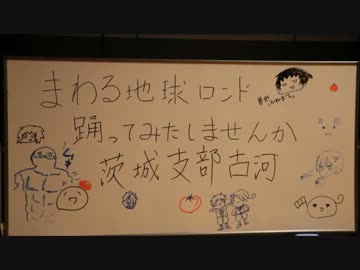 まわる地球ロンド
踊ってみたしませんか
茨城支部古河